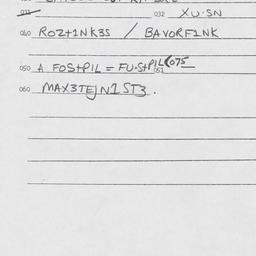 032 XU·SN
040 ROZt1NK3S / BAVORF1NK
050 A FOStPIL = FU·StPIL 075
051
060 MAX3TEJN1ST3.